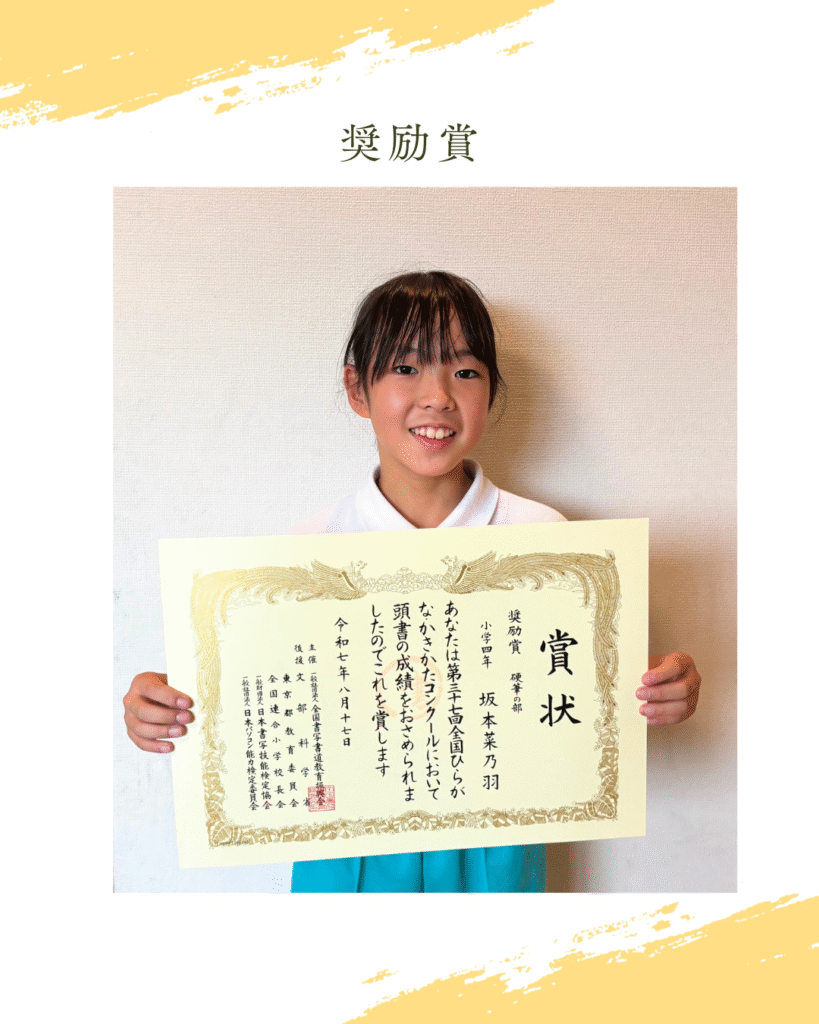 奨励賞
賞状
奨励賞 硬筆の部
小学四年 坂本菜乃羽
あなたは第三十七回全国ひらが
な・かきかたコンクールにおいて
頭書の成績をおさめられま
したのでこれを賞します
令和七年八月十七日
主催 一般社団法人全国書写書道教育振興会
後援 文部科学省
東京都教育委員会
全国連合小学校長会
一般財団法人日本書写技能検定協会
一般社団法人日本パソコン能力検定委員会